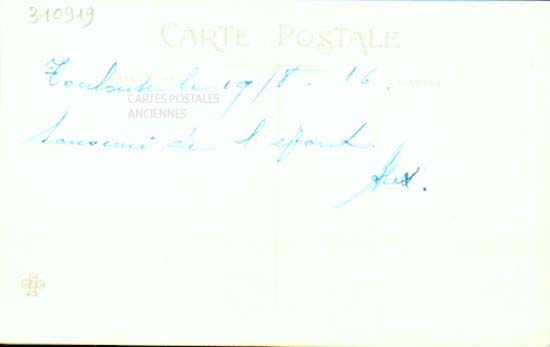 310919
CARTE POSTALE
Toulouse le 19/8. 16.
CARTES POSTALES
ANCIENNES
Souvenir de